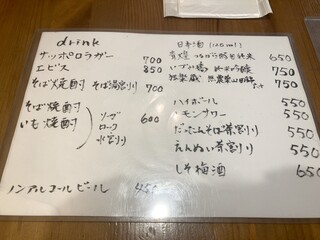 drink
サッポロラガー 700
エビス 850
そば焼酎 そば湯割り 700
そば焼酎
いも焼酎
ソーダ
ロック
水割り
600
ノンアルコールビール 450
日本酒
650
750
750
ハイボール 550
レモンサワー 550
だったんそば茶割り 550
550
しそ梅酒 650